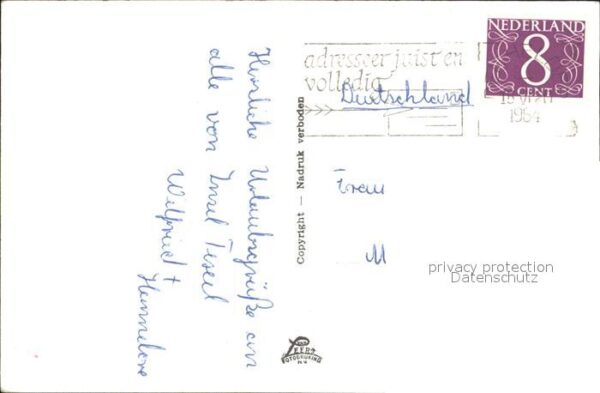 Herzliche Urlaubsgrüße an
alle von Insel Texel
Wilfried +
Hannelore
Copyright — Nadruk verboden
adresseer juist en
volledig
Deutschland
NEDERLAND
8
CENT
1964
Frau
M
privacy protection
Datenschutz